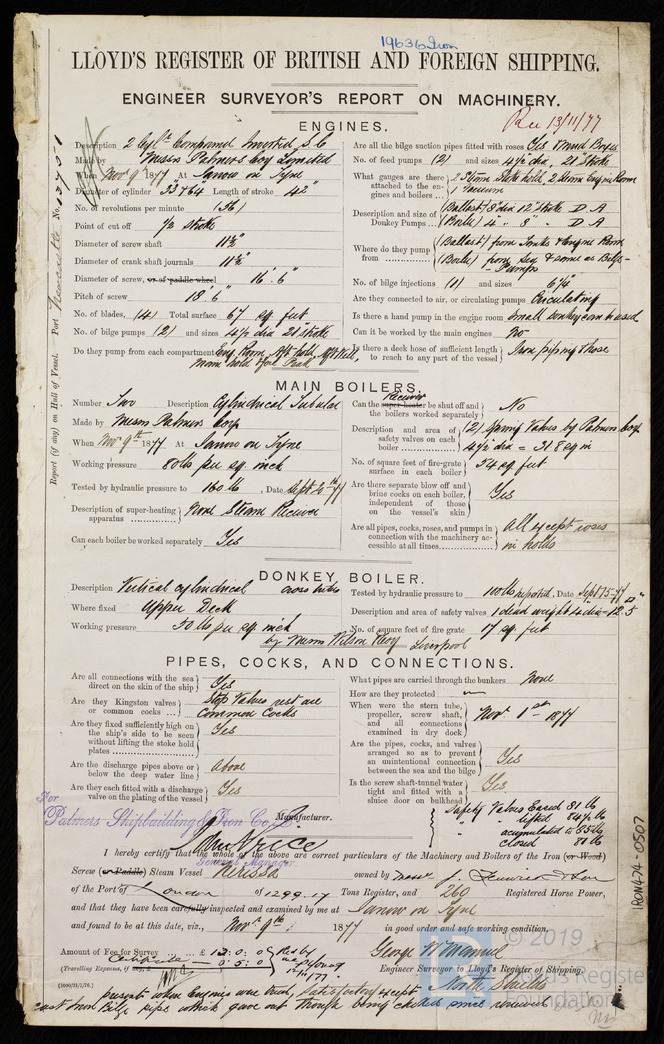 19636 Iron
LLOYD'S REGISTER OF BRITISH AND FOREIGN SHIPPING.
ENGINEER SURVEYOR'S REPORT ON MACHINERY.
Rec 13/11/77
ENGINES.
Description 2 Cylr Compound Inverted S.C
Made by Messrs Palmers Coy Limited
When Nov 9th 1877 At Jarrow on Tyne
Diameter of cylinder 33" & 64 Length of stroke 42"
No. of revolutions per minute (56)
Point of cut off 1/2 stroke
Diameter of screw shaft 11 1/2"
Diameter of crank shaft journals 11 1/2"
Diameter of screw, or of paddle wheel 16'. 6"
Pitch of screw 18'. 6"
No. of blades, (4) Total surface 67 sq. feet
No. of bilge pumps (2) and sizes 4 1/2 dia 21" stroke
Do they pump from each compartment Eng. Room, Aft hold, Aft Well,
Main hold Fore Peak
Are all the bilge suction pipes fitted with roses Yes Mud Boxes
No. of feed pumps (2) and sizes 4 1/2 dia. 21 Stroke
What gauges are there attached to the engines and boilers 2 Steam Stoke hold, 2 Steam Eng Room
1 Vacuum
Description and size of Donkey Pumps (Ballast) 8" dia 12" Stroke D. A
(Boiler) 4" . 8" . D A
Where do they pump from (Ballast) from Tanks & Engine Room
(Boiler) from Sea & same as Bilge-
-Pumps
No. of bilge injections (1) and sizes 6 1/4"
Are they connected to air, or circulating pumps Circulating
Is there a hand pump in the engine room Small donkey can be used
Can it be worked by the main engines No
Is there a deck hose of sufficient length to reach to any part of the vessel Iron piping & hose
Report (if any) on Hull of Vessel. Port Newcastle No.
MAIN BOILERS.
Number Two Description Cylindrical Tubular
Made by Messrs Palmers Coy
When Nov 9th 1877 At Jarrow on Tyne
Working pressure 80 lbs per sq. inch
Tested by hydraulic pressure to 160 lb, Date Sept 20th 77
Description of super-heating apparatus None Steam Receiver
Can each boiler be worked separately Yes
Receiver
Can the super-heater be shut off and the boilers worked separately No
Description and area of safety valves on each boiler (2) Spring Valves by Palmers Coy
4 1/2 dia = 31.8 sq in
No. of square feet of fire-grate surface in each boiler 54 sq feet
Are there separate blow off and brine cocks on each boiler, independent of those on the vessel's skin Yes
Are all pipes, cocks, roses, and pumps in connection with the machinery accessible at all times All except roses
in holds
DONKEY BOILER.
Description Vertical cylindrical cross tubes
Where fixed Upper Deck
Working pressure 50 lbs per sq. inch
by Messrs Wilson &Coy Liverpool
Tested by hydraulic pressure to 100 lbs, Date Sept 15-77
Description and area of safety valves 1 dead weight 4 dia = 12.5
No. of square feet of fire grate 17 sq. feet
PIPES, COCKS, AND CONNECTIONS.
Are all connections with the sea direct on the skin of the ship Yes
Are they Kingston valves or common cocks Stop Valves rest are
Common Cocks
Are they fixed sufficiently high on the ship's side to be seen without lifting the stoke hold plates Yes
Are the discharge pipes above or below the deep water line Above
Are they each fitted with a discharge valve on the plating of the vessel Yes
What pipes are carried through the bunkers None
How are they protected —
When were the stern tube, propeller, screw shaft, and all connections examined in dry dock Nov. 1st — 1877
Are the pipes, cocks, and valves arranged so as to prevent an unintentional connection between the sea and the bilge Yes
Is the screw shaft-tunnel water tight and fitted with a sluice door on bulkhead Yes.
Safety Valves Eased 81 lb
" lifted 84 1/2 lb
" accumulated to 85 lb
closed 81 lb
For
Palmers Shipbuilding & Iron Co. Ld Manufacturer.
John Price
General Manager
I hereby certify that the whole of the above are correct particulars of the Machinery and Boilers of the Iron (or Wood)
Screw (or Paddle) Steam Vessel Nerissa owned by Messrs J. Fenwick & Son
of the Port of London of 1299.17 Tons Register, and 260 Registered Horse Power,
and that they have been carefully inspected and examined by me at Jarrow on Tyne
and found to be at this date, viz., Novr 9th 1877 in good order and safe working condition.
Amount of Fee for Survey ... £ 13 : 0 : 0
Certificate — 0 : 5 : 0
(Travelling Expenses, if any, £
George N
Engineer Surveyor to Lloyd's Register of Shipping.
North Shields
present when Engines were tried, satisfactory except
cast iron Bilge pipes which gave out through being choked since renewed
IRON474-0507
© 2019
Lloyd's Register
Foundation